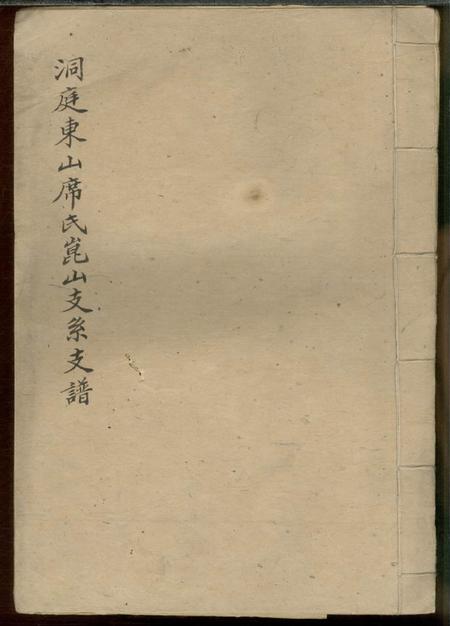 洞庭東山席氏崑山支系支譜